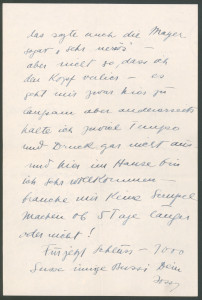 das sagte auch die Mager
sogar „sehr nervös" –
aber nicht so, dass ich
den Kopf verlier – es
geht mir zwar hier zu
langsam aber andererseits
halte ich zuviel Tempo
und Druck gar nicht aus
und hier im Hause bin
ich sehr willkommen –
brauche mir keine Skrupel
machen ob 5 Tage länger
oder nicht!
Für jetzt Schluss – 1000
innige Bussi Dein